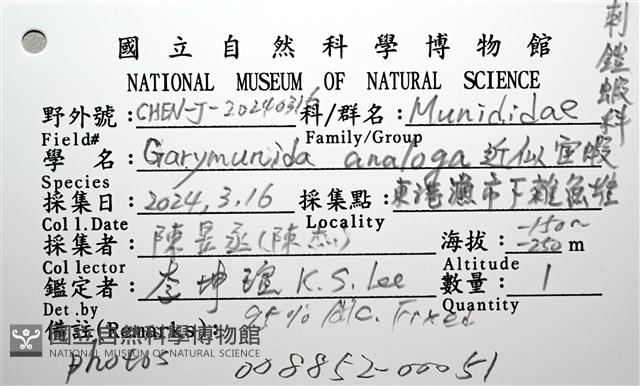 國立自然科學博物館
NATIONAL MUSEUM OF NATURAL SCIENCE
刺鎧蝦科
野外號:CHEN-J-20240316 科/群名:Munididae
Field# Family/Group
學 名:Garymunida analoga 近似宙蝦
Species
採集日:2024,3.16 採集點:東港漁市下雜魚堆
Col l.Date Locality
採集者:陳昱丞(陳杰) 海拔:-150~-250 m
Col lector Altitude
鑑定者:李坤瑄 K.S. Lee 數量:1
Det .by Quantity
備註(Remarks): 95% Alc. Fixed
國立自然科學博物館
NATIONAL MUSEUM OF NATURAL SCIENCE
photos 008852-00051